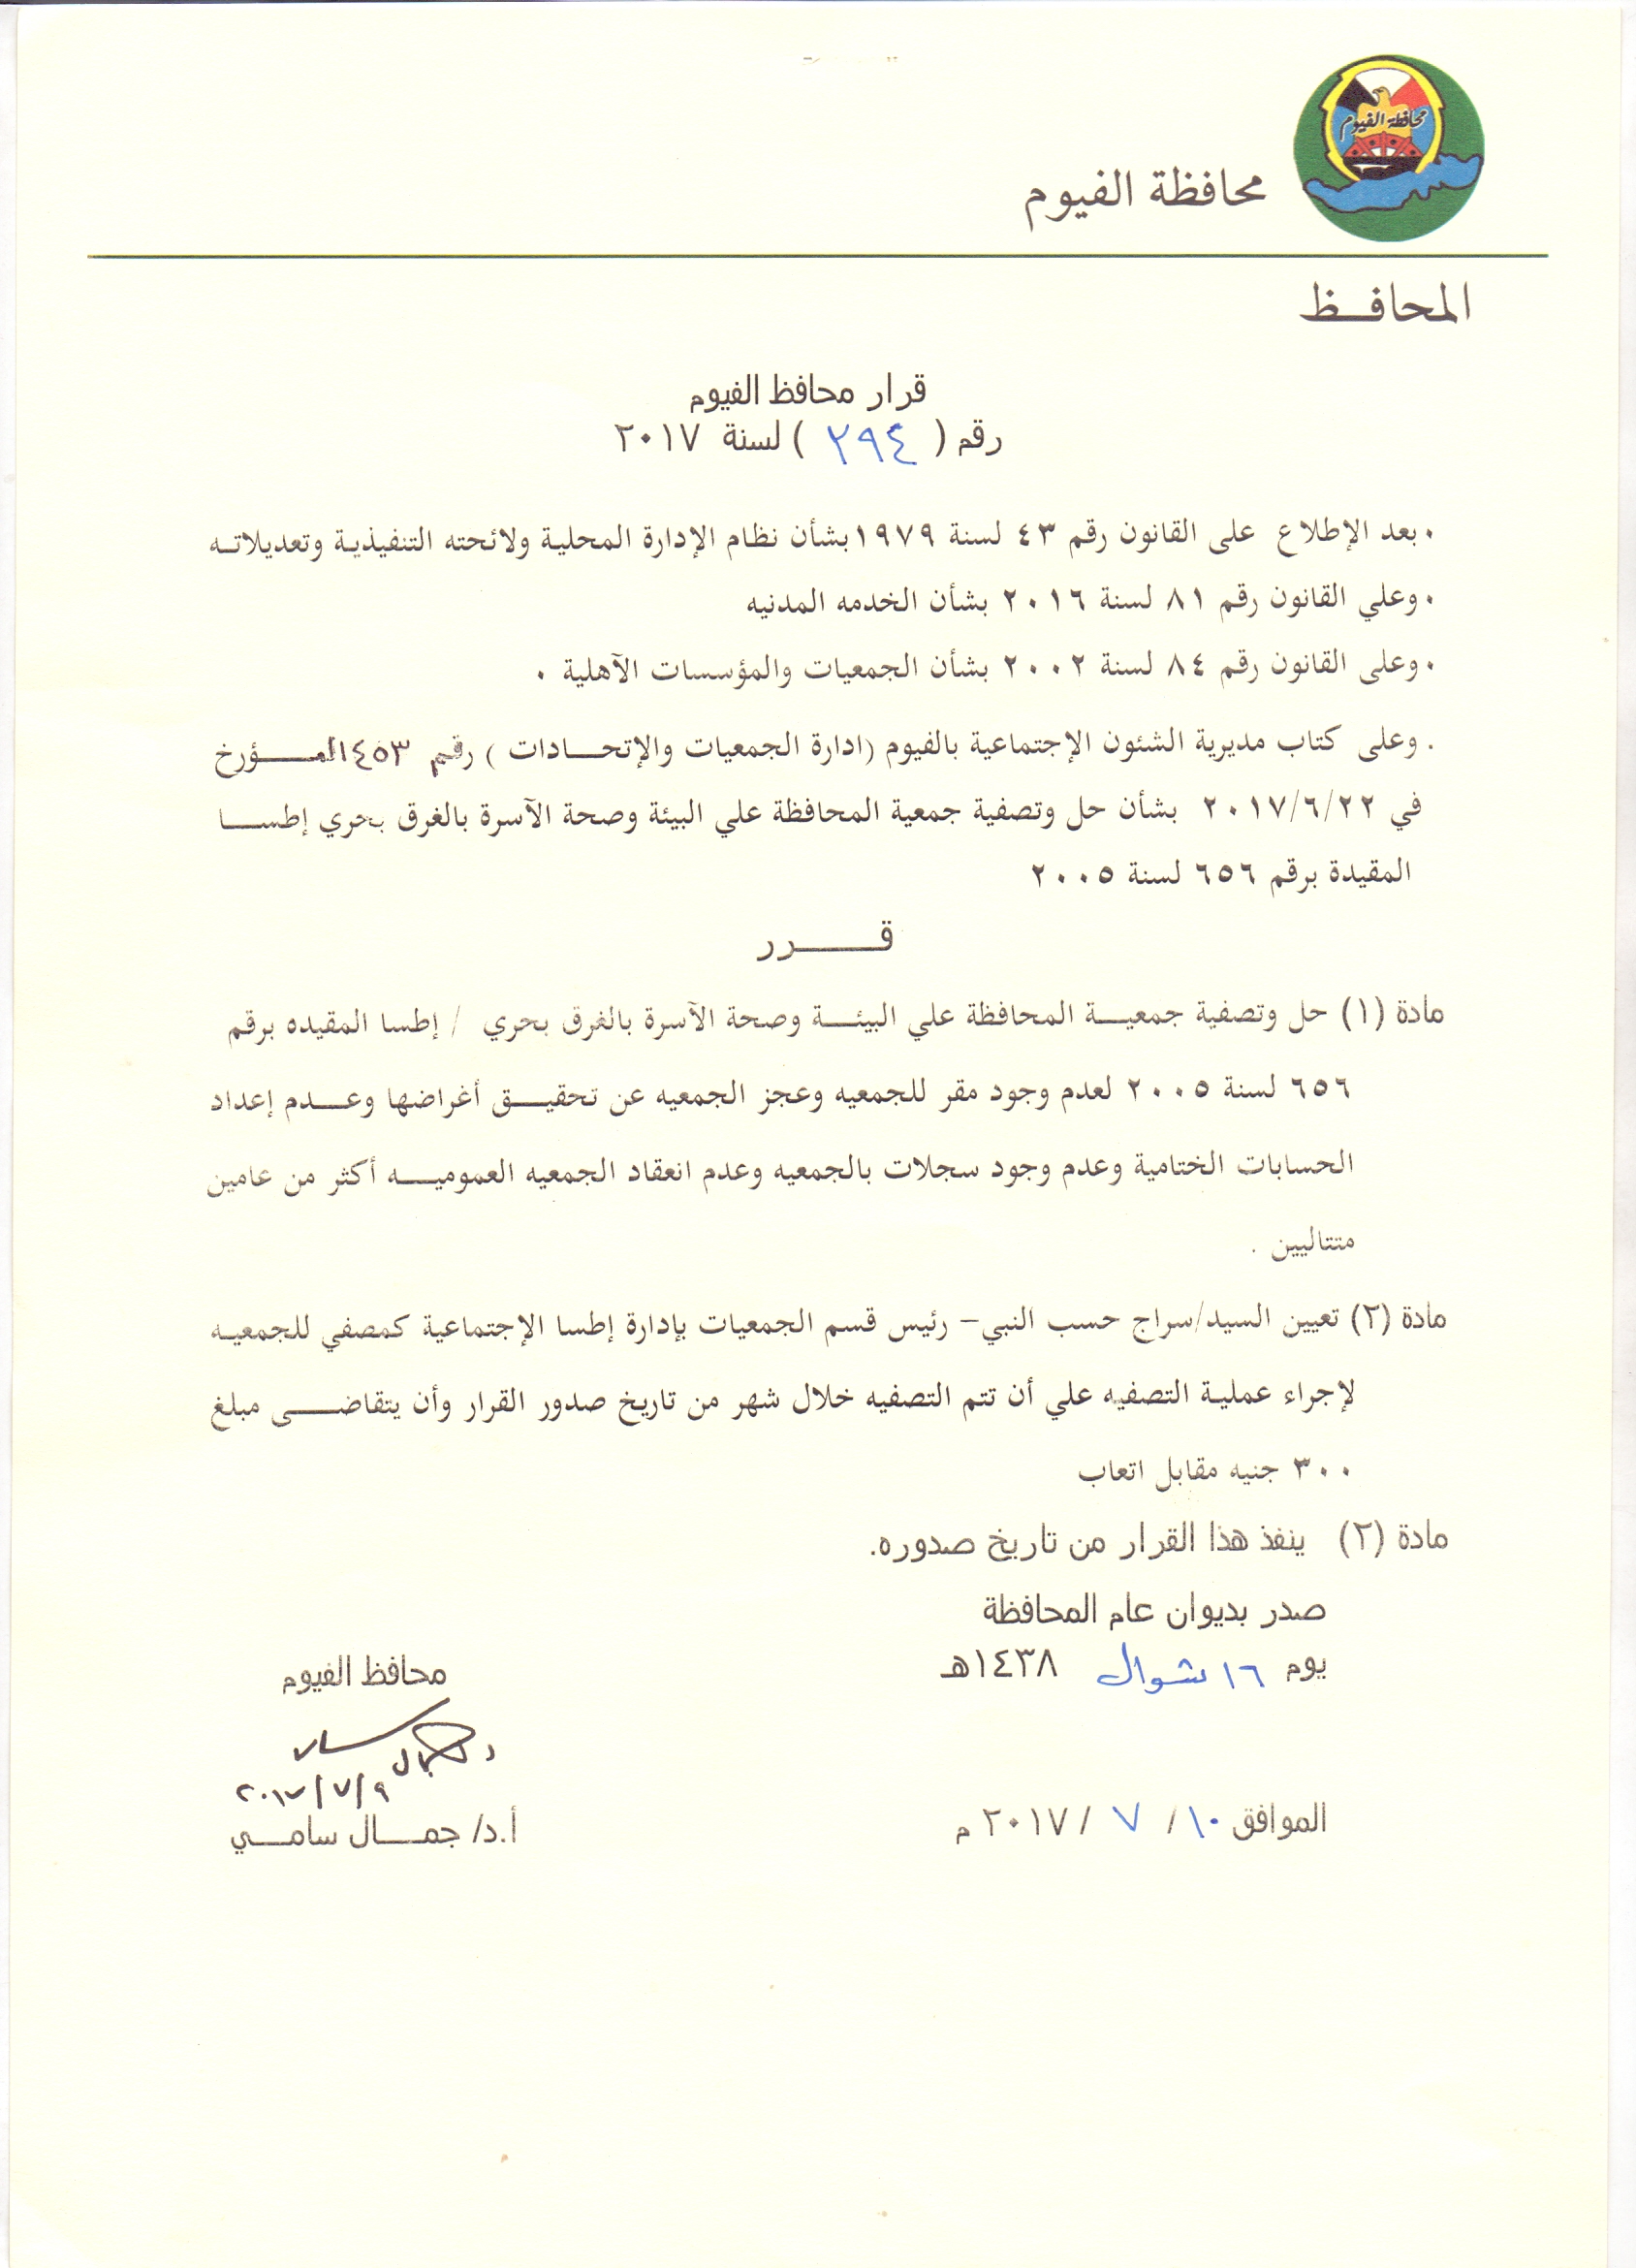 محافظة الفيوم
محافظة الفيوم
المحافـــظ
قرار محافظ الفيوم
رقم ( ٢٩٤ ) لسنة ٢٠١٧
٠ بعد الإطلاع على القانون رقم ٤٣ لسنة ١٩٧٩ بشأن نظام الإدارة المحلية ولائحته التنفيذية وتعديلاتـه
٠ وعلي القانون رقم ٨١ لسنة ٢٠١٦ بشأن الخدمه المدنيه
٠ وعلى القانون رقم ٨٤ لسنة ٢٠٠٢ بشأن الجمعيات والمؤسسات الآهلية ٠
. وعلى كتاب مديرية الشئون الإجتماعية بالفيوم (ادارة الجمعيات والإتحـــادات ) رقم ١٤٥٣المـــؤرخ
في ٢٠١٧/٦/٢٢ بشأن حل وتصفية جمعية المحافظة علي البيئة وصحة الآسرة بالغرق بحري إطســـا
المقيدة برقم ٦٥٦ لسنة ٢٠٠٥
قـــــرر
مادة (١) حل وتصفية جمعيـــة المحافظة علي البيئـــة وصحة الآسرة بالغرق بحري / إطسا المقيده برقم
٦٥٦ لسنة ٢٠٠٥ لعدم وجود مقر للجمعيه وعجز الجمعيه عن تحقيـــق أغراضها وعـــدم إعداد
الحسابات الختامية وعدم وجود سجلات بالجمعيه وعدم انعقاد الجمعيه العموميـــه أكثر من عامين
متتاليين .
مادة (٢) تعيين السيد/سراج حسب النبي– رئيس قسم الجمعيات بإدارة إطسا الإجتماعية كمصفي للجمعيـه
لإجراء عملية التصفيه علي أن تتم التصفيه خلال شهر من تاريخ صدور القرار وأن يتقاضـــى مبلغ
٣٠٠ جنيه مقابل اتعاب
مادة (٢) ينفذ هذا القرار من تاريخ صدوره.
صدر بديوان عام المحافظة
يوم ١٦ شوال ١٤٣٨هـ
محافظ الفيوم
٢٠١٧/٧/٩
الموافق ١٠ / ٧ / ٢٠١٧ م
أ.د/ جمـــال سامـــي